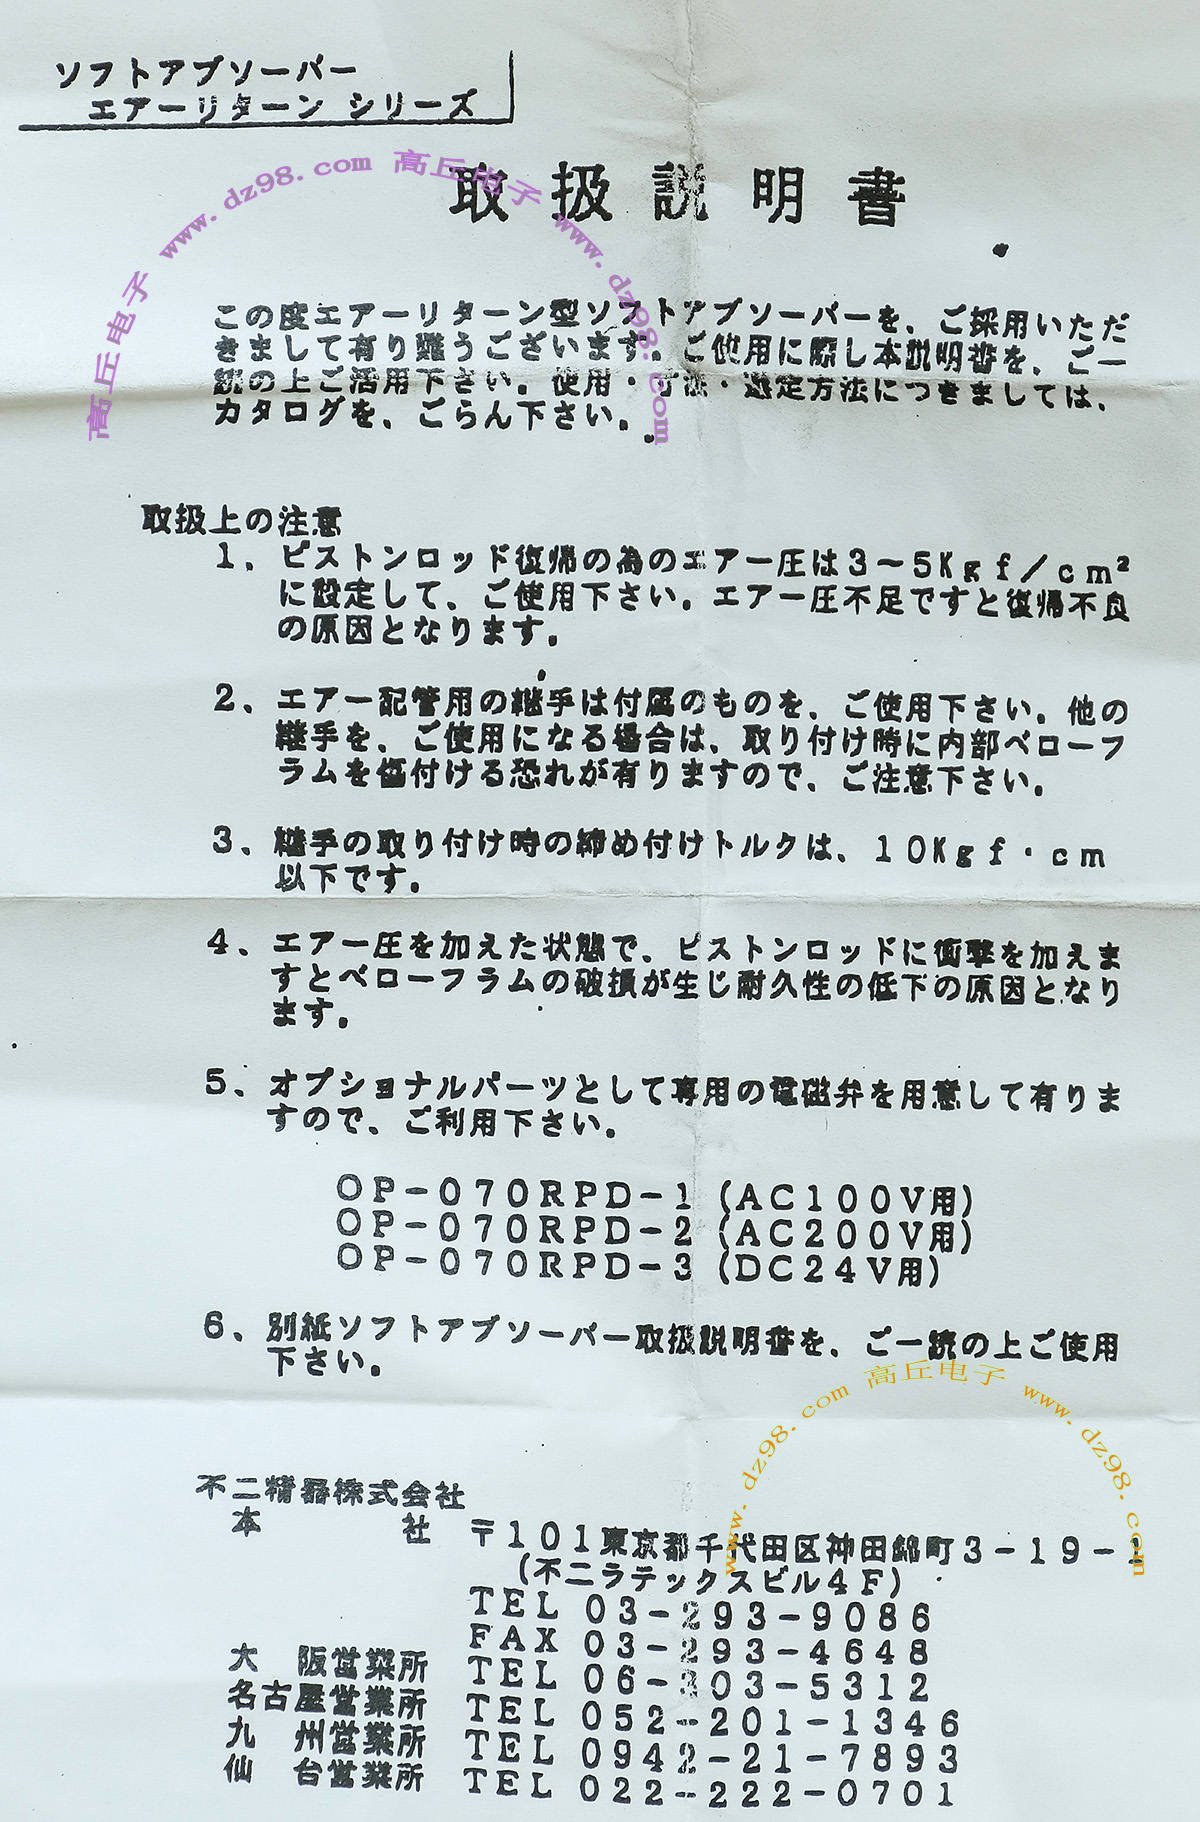 ソフトアブソーバー
エアーリターン シリーズ
取扱説明書
www.dz98.com 高丘电子
高丘电子 www.dz98.com
この度エアーリターン型ソフトアブソーバーを、ご採用いただ
きまして有り難うございます。ご使用に際し本説明書を、ご一
読の上ご活用下さい。使用・寸法・選定方法につきましては、
カタログを、ごらん下さい。
取扱上の注意
1、ピストンロッド復帰の為のエアー圧は3～5Kgf/cm²
に設定して、ご使用下さい。エアー圧不足ですと復帰不良
の原因となります。
2、エアー配管用の継手は付属のものを、ご使用下さい。他の
継手を、ご使用になる場合は、取り付け時に内部ベローフ
ラムを傷付ける恐れが有りますので、ご注意下さい。
3、継手の取り付け時の締め付けトルクは、10Kgf・cm
以下です。
4、エアー圧を加えた状態で、ピストンロッドに衝撃を加えま
すとベローフラムの破損が生じ耐久性の低下の原因となり
ます。
5、オプショナルパーツとして専用の電磁弁を用意して有りま
すので、ご利用下さい。
OP-070RPD-1 (AC100V用)
OP-070RPD-2 (AC200V用)
OP-070RPD-3 (DC24V用)
6、別紙ソフトアブソーバー取扱説明書を、ご一読の上ご使用
下さい。
www.dz98.com 高丘电子 www.dz98.com
不二精器株式会社
本 社 〒101東京都千代田区神田錦町3-19-1
(不二ラテックスビル4F)
TEL 03-293-9086
FAX 03-293-4648
大 阪営業所 TEL 06-303-5312
名古屋営業所 TEL 052-201-1346
九 州営業所 TEL 0942-21-7893
仙 台営業所 TEL 022-222-0701